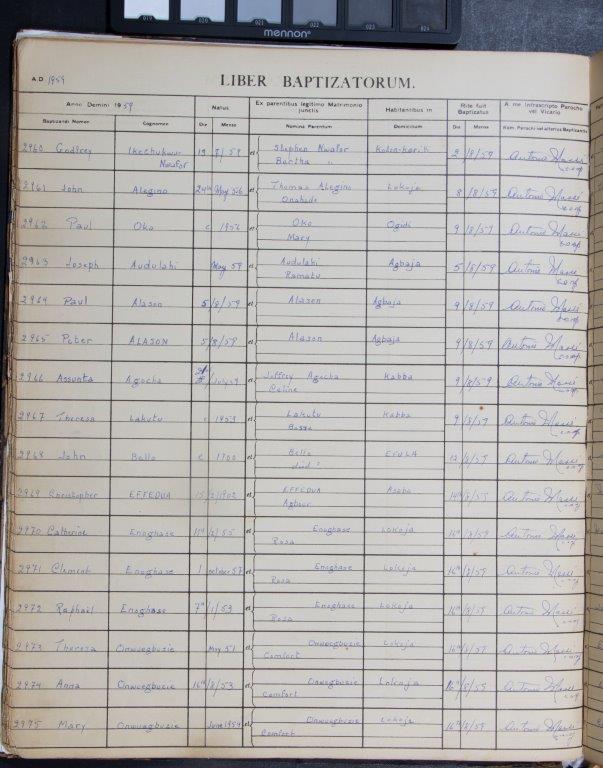 019 020 021 022 023 024
mennon
A.D. 1959
LIBER BAPTIZATORUM.
Anno Domini 1959 Natus Ex parentibus legitimo Matrimonio junctis Habitantibus in Rite fuit Baptizatus A me infrascripto Parocho vel Vicario
Baptizandi Nomen Cognomen Die Mense Nomina Parentum Domicilium Die Mense Nom. Parochi vel alterius Baptizantis
2960 Godfrey Ikechukwu Nwafor 19 /59 et Stephen Nwafor Bertha 2 /8/59 Antonio coop
2961 John Alegino 24th May 56 et Thomas Alegino Lokoja 8 /8/59 Antonio coop
2962 Paul Oko c 1956 et Oko Mary Ogidi 9 /8/59 Antonio coop
2963 Joseph Audulahi May 59 et Audulahi Ramatu Agbaja 5/8/59 Antonio coop
2964 Paul Alason 5/8/59 et Alason Agbaja 9 /8/59 Antonio coop
2965 Peter ALASON 5/8/59 et Alason Agbaja 9/8/59 Antonio coop
2966 Assunta Agocha July 59 et Joffrey Agocha Celine Kabba 9/8/59 Antonio coop
2967 Theresa Lakutu c 1953 et Lakutu Kabba 9 /8/59 Antonio coop
2968 John Bello c 1900 et Bello died 12 /8/59 Antonio coop
2969 Christopher EFFEDUA 15/2/1902 et EFFEDUA Agbour Asaba 14th/8/59 Antonio coop
2970 Catherine Enoghase /55 et Enoghase Rosa Lokoja 16th/8/59 Antonio coop
2971 Clement Enoghase 1 october 57 et Enoghase Rosa Lokoja 16th/8/59 Antonio coop
2972 Raphael Enoghase 7th/1/53 et Enoghase Rosa Lokoja 16th/8/59 Antonio coop
2973 Theresa Onwuegbuzie May 51 et Onwuegbuzie Comfort Lokoja 16th/8/59 Antonio coop
2974 Anna Onwuegbuzie 16th/8/53 et Onwuegbuzie Comfort Lokoja 16th/8/59 Antonio coop
2975 Mary Onwuegbuzie June 1959 et Onwuegbuzie Comfort Lokoja 16th/8/59 Antonio coop